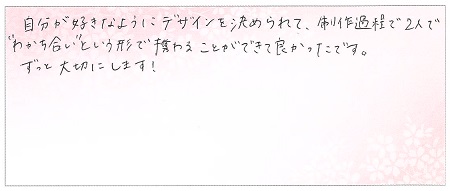 自分が好きなようにデザインを決められて、制作過程で2人で
"わかち合い"という形で携わることができて良かったです。
ずっと大切にします!